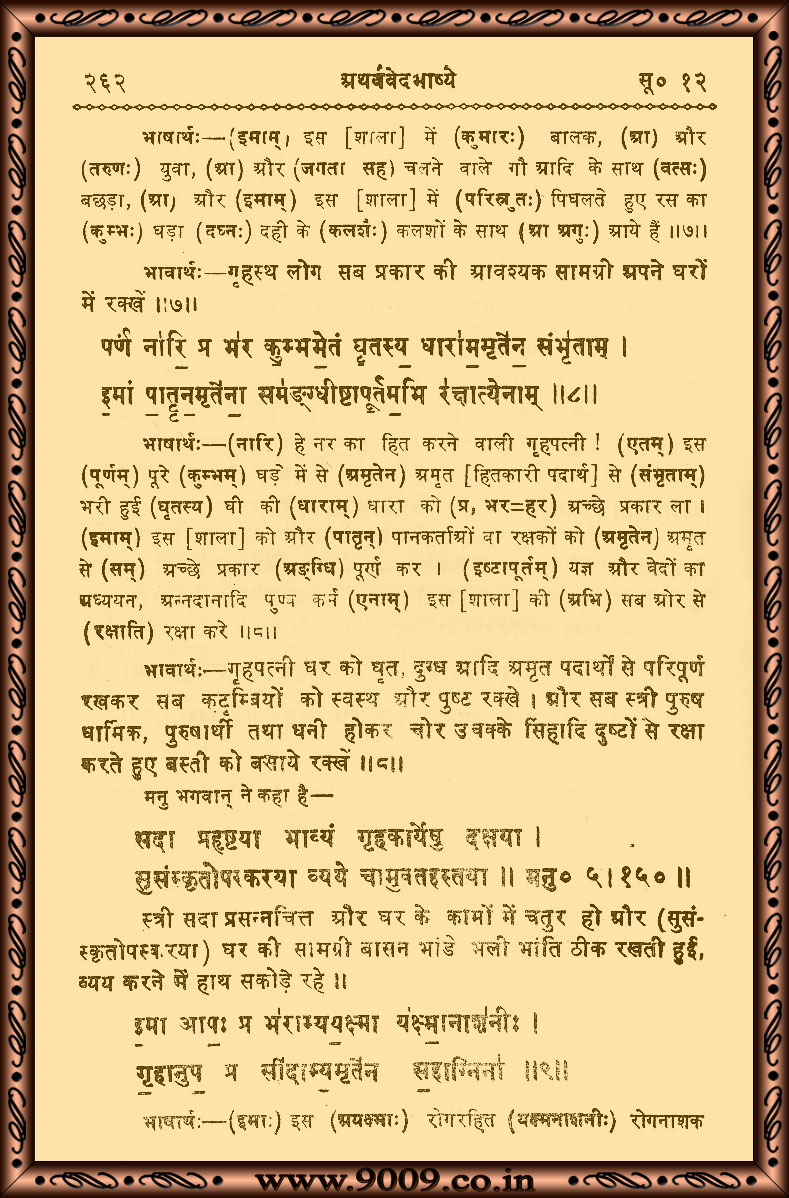 २६२ अथर्ववेदभाष्ये सू० १२
भाषार्थः—(इमाम्) इस [शाला] में (कुमारः) बालक, (आ) और
(तरुणः) युवा, (आ) और (जगता सह) चलने वाले गौ आदि के साथ (वत्सः)
बछड़ा, (आ) और (इमाम्) इस [शाला] में (परिस्रुतः) पिघलते हुए रस का
(कुम्भः) घड़ा (दध्नः) दही के (कलशैः) कलशों के साथ (आ अगुः) आये हैं ॥७॥
भावार्थः—गृहस्थ लोग सब प्रकार की आवश्यक सामग्री अपने घरों
में रक्खें ॥७॥
पर्णं ना॑रि॒ प्र भ॑र कु॒म्भमे॒तं घृ॒तस्य॒ धारा॑म॒मृते॑न॒ संभृ॑ताम् ।
इ॒मां पा॒तॄन॒मृते॑ना॒ सम॑ङ्ग्धीष्टापू॒र्तम॒भि र॑क्षात्येनाम् ॥८॥
भाषार्थः—(नारि) हे नर का हित करने वाली गृहपत्नी ! (एतम्) इस
(पूर्णम्) पूरे (कुम्भम्) घड़े में से (अमृतेन) अमृत [हितकारी पदार्थ] से (संभृताम्)
भरी हुई (घृतस्य) घी की (धाराम्) धारा को (प्र, भर=हर) अच्छे प्रकार ला ।
(इमाम्) इस [शाला] को और (पातॄन्) पानकर्ताओं वा रक्षकों को (अमृतेन) अमृत
से (सम्) अच्छे प्रकार (अङ्ग्धि) पूर्ण कर । (इष्टापूर्तम्) यज्ञ और वेदों का
अध्ययन, अन्नदानादि पुण्य कर्म (एनाम्) इस [शाला] की (अभि) सब ओर से
(रक्षाति) रक्षा करे ॥८॥
भावार्थः—गृहपत्नी घर को घृत, दुग्ध आदि अमृत पदार्थों से परिपूर्ण
रखकर सब कुटुम्बियों को स्वस्थ और पुष्ट रक्खे । और सब स्त्री पुरुष
धार्मिक, पुरुषार्थी तथा धनी होकर चोर उचक्के सिंहादि दुष्टों से रक्षा
करते हुए बस्ती को बसाये रक्खें ॥८॥
मनु भगवान् ने कहा है—
सदा प्रहृष्टया भाव्यं गृहकार्येषु दक्षया ।
सुसंस्कृतोपस्करया व्यये चामुक्तहस्तया ॥ मनु० ५।१५० ॥
स्त्री सदा प्रसन्नचित्त और घर के कामों में चतुर हो और (सुसं-
स्कृतोपस्करया) घर की सामग्री बासन भांडे भली भांति ठीक रखती हुई,
व्यय करने में हाथ सकोड़े रहे ॥
इ॒मा आपः॒ प्र भ॑राम्यय॒क्ष्मा य॑क्ष्म॒नाश॑नीः ।
गृ॒हानुप॒ प्र सी॑दाम्य॒मृते॑न स॒हाग्निना॑ ॥९॥
भाषार्थः—(इमाः) इस (अयक्ष्माः) रोगरहित (यक्ष्मनाशनीः) रोगनाशक
www.9009.co.in